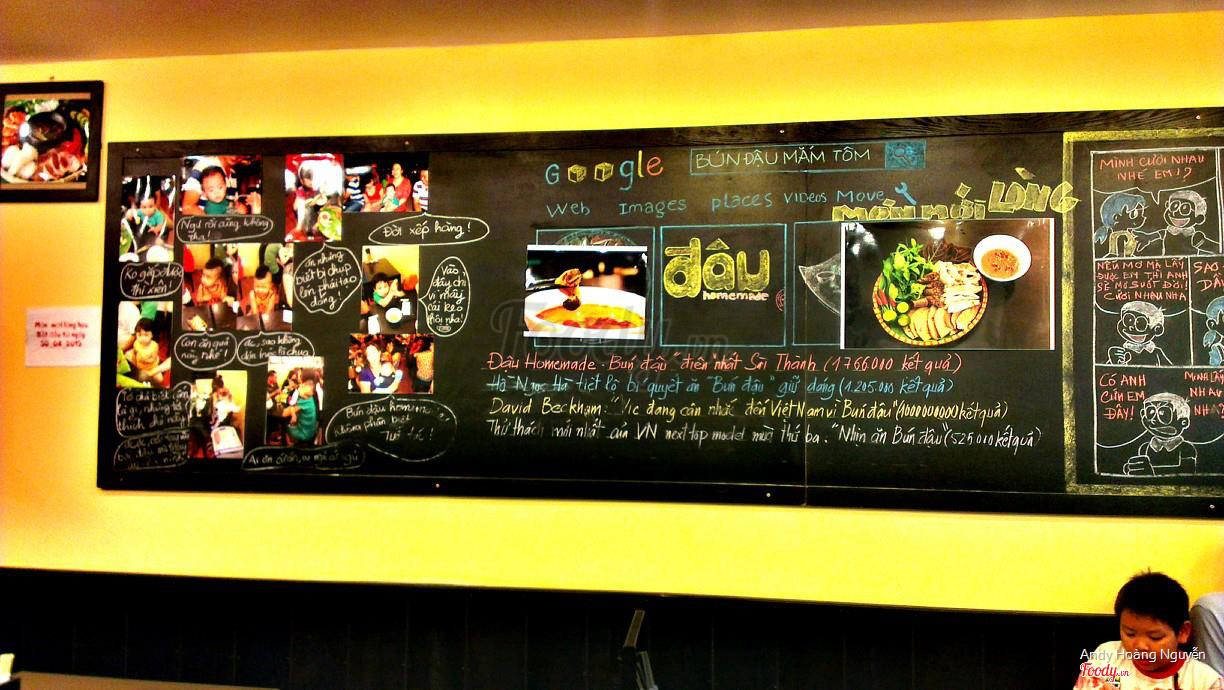 Ngủ rồi cũng không tha!
Đời xếp hàng!
Ko gấp được thì xiên!
ăn nhưng biết bị chụp lén phải tạo dáng!
Vào đây chỉ vì mấy cái kẹo thôi nha!
Con ăn quá nay nhé!
Món mới lòng heo
Bắt đầu từ ngày
30_04_2012
Bún đậu homemade
không phân biệt
Tuổi tác!
Google
BÚN ĐẬU MẮM TÔM
Web Images places videos Move
MÓN MỚI LÒNG
đậu
homemade
Đậu Homemade - Bún đậu "điên" nhất Sài Thành (1766.000 kết quả)
Hồ Ngọc Hà tiết lộ bí quyết ăn "Bún đậu" giữ dáng (1.205.000 kết quả)
David Beckham: "Vic đang cân nhắc đến Việt Nam vì Bún đậu" (1000000000 kết quả)
Thử thách mới nhất của VN next top model mùa thứ ba. "Nhịn ăn Bún đậu" (525.010 kết quả)
MÌNH CƯỚI NHAU
NHÉ EM!?
NẾU MƠ MÀ LẤY
ĐƯỢC EM THÌ ANH
SẼ MƠ SUỐT ĐỜI!
CƯỚI NHAU NHA
SAO
CÓ ANH
CƯN EM
ĐÂY!
MÌNH LẤY
NHA
Foody.vn
Andy Hoàng Nguyễn
Foody.vn